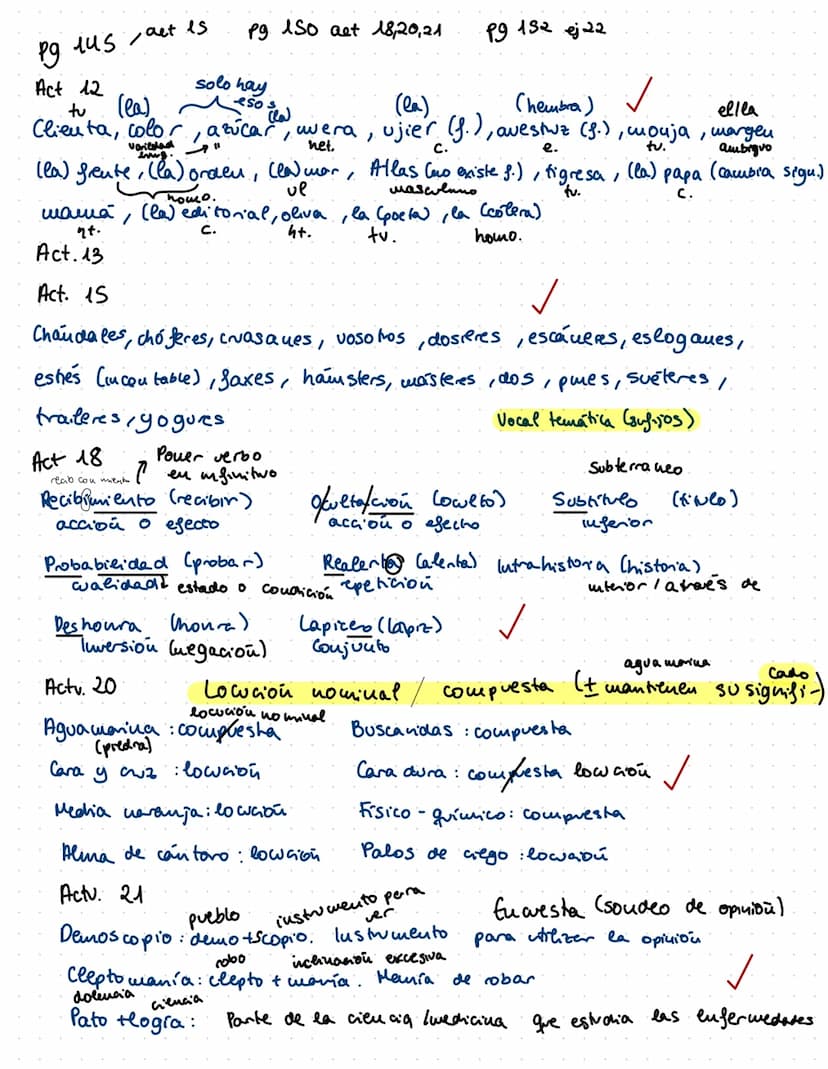 pg 145, act 15 pg 150 act 18,20,21 pg 152 ej 22
Act 12
solo hay esos
tv (la) (la) (la) (hembra) el/la
Clienta, color, azúcar, nuera, ujier (f.), avestruz (f.), monja, margen
variedad ling. " het. c. e. tv. ambiguo
(la) frente, (la) orden, (la) mar, Atlas (no existe f.), tigresa, (la) papa (cambia segu.)
homo. masculino tv. c.
mamá, (la) editorial, oliva, la (poeta), la (cólera)
ht. c. ht. tv. homo.
Act. 13
Act. 15
Chándales, chóferes, cruasanes, vosotros, dosieres, escáneres, eslóganes,
estrés (incontable), faxes, hámsters, másteres, dos, pines, suéteres,
traileres, yogures
Vocal temática (sufijos)
Act 18 Poner verbo en infinitivo Subterraneo
Recibimiento (recibir) Ocultación (oculto) Subtítulo (título)
acción o efecto acción o efecto inferior
Probabilidad (probar) Realenta (alenta) Intrahistoria (historia)
cualidad estado o condición repetición interior / através de
Deshonra (honra) Lapicero (lápiz)
Inversión (negación) Conjunto
agua marina
Actv. 20 Locución nominal / compuesta (± mantienen su signifi-cado)
locución nominal
Aguamarina : compuesta Buscavidas : compuesta
(piedra)
Cara y cruz : locución Cara dura : compuesta locución
Media naranja : locución Físico-químico : compuesta
Alma de cántaro : locución Palos de ciego : locución
Actv. 21
pueblo instrumento para ver Encuesta (sondeo de opinión)
Demoscopio : demo + scopio. Instrumento para utilizar la opinión
robo inclinación excesiva
Cleptomanía : clepto + manía. Manía de robar
dolencia ciencia
Pato + logía : Parte de la ciencia / medicina que estudia las enfermedades